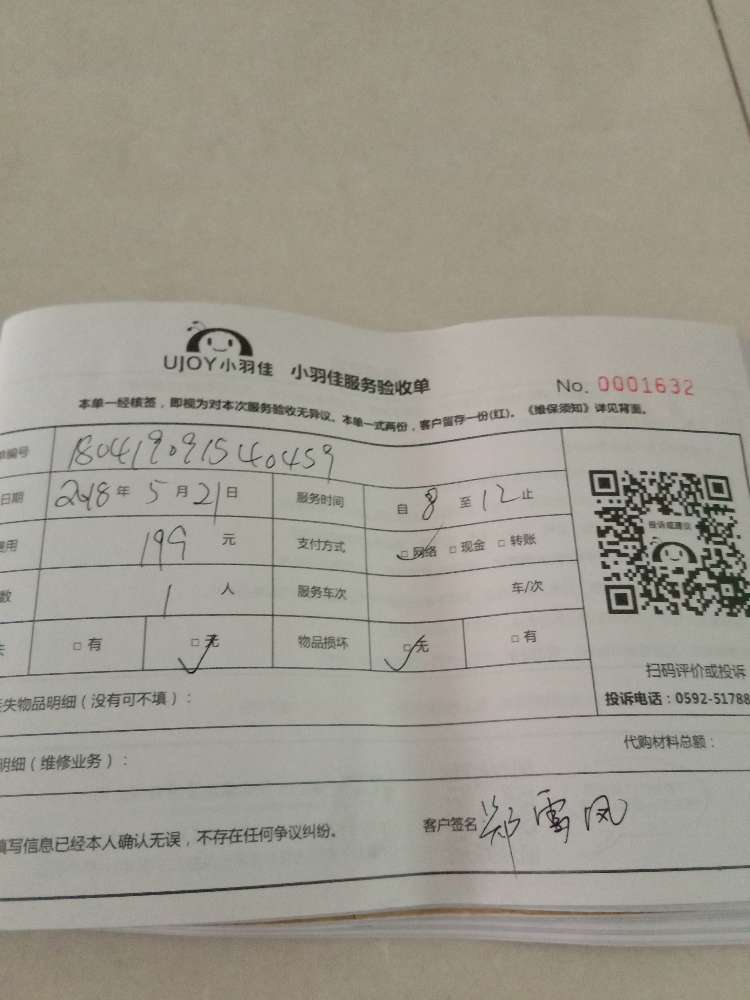 UJOY小羽佳 小羽佳服务验收单
No. 0001632
本单一经核签，即视为对本次服务验收无异议。本单一式两份，客户留存一份(红)。《维保须知》详见背面。
单编号 180419091540459
日期 2018年5月21日 服务时间 自8至12止
费用 199元 支付方式 □网络 □现金 □转账
数 1人 服务车次 车/次
失 □有 □无 物品损坏 □无 □有
投诉或建议
扫码评价或投诉
投诉电话：0592-51788
丢失物品明细（没有可不填）：
明细（维修业务）： 代购材料总额：
填写信息已经本人确认无误，不存在任何争议纠纷。 客户签名 郑雪凤